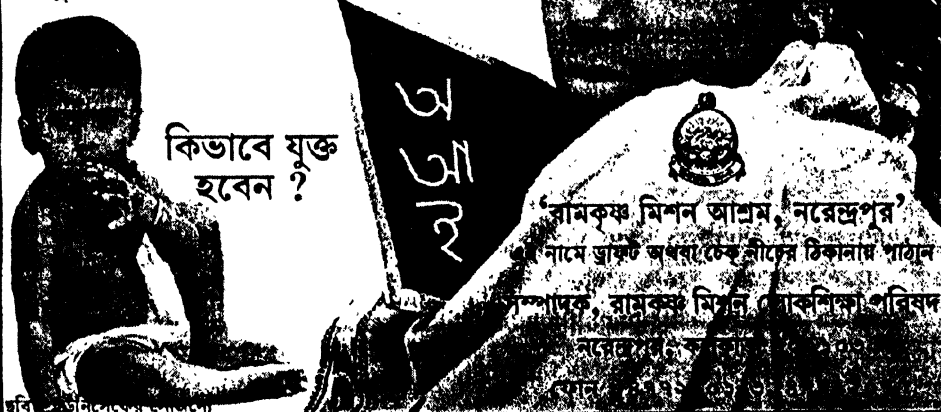 কিভাবে যুক্ত
হবেন ?
অ
আ
ই
‘রামকৃষ্ণ মিশন আশ্রম, নরেন্দ্রপুর’
এই নামে ড্রাফ্ট অথবা চেক নীচের ঠিকানায় পাঠান
সম্পাদক, রামকৃষ্ণ মিশন লোকশিক্ষা পরিষদ
নরেন্দ্রপুর,
ফোন